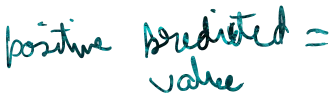 positive predicted =
value